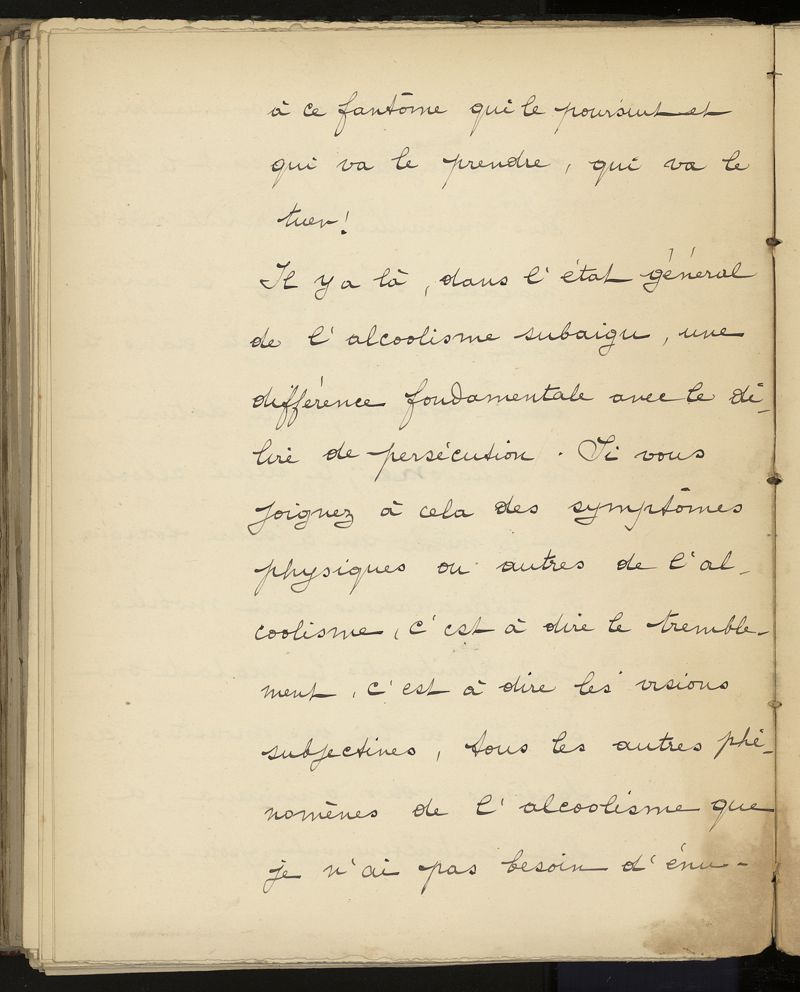 à ce fantôme qui le poursuit et
qui va le prendre, qui va le
tuer!
Il y a là, dans l'état général
de l'alcoolisme subaigu, une
différence fondamentale avec le dé-
lire de persécution. Si vous
joignez à cela des symptômes
physiques ou autres de l'al-
coolisme, c'est à dire le tremble-
ment, c'est à dire les visions
subjectives, tous les autres phé-
nomènes de l'alcoolisme que
je n'ai pas besoin d'énu-